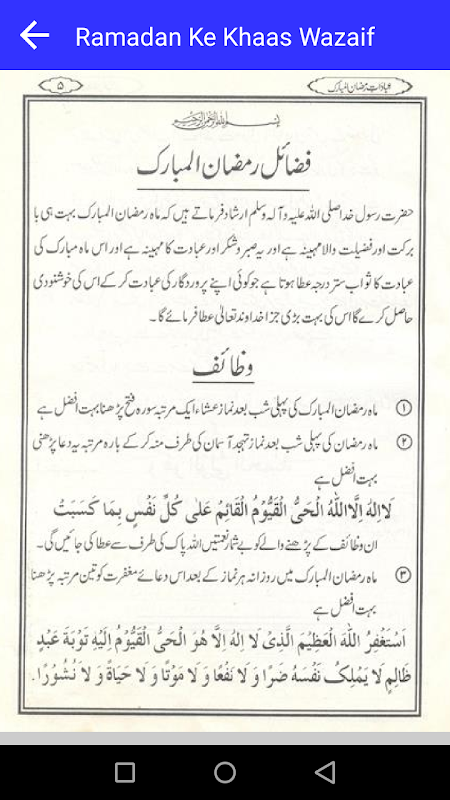 Ramadan Ke Khaas Wazaif
عبادات رمضان المبارک
۵
بسم اللہ الرحمٰن الرحیم
فضائل رمضان المبارک
حضرت رسول خدا صلی اللہ علیہ وآلہ وسلم ارشاد فرماتے ہیں کہ ماہ رمضان المبارک بہت ہی با
برکت اور فضیلت والا مہینہ ہے اور یہ صبر و شکر اور عبادت کا مہینہ ہے اور اس ماہ مبارک کی
عبادت کا ثواب ستر درجہ عطا ہوتا ہے جو کوئی اپنے پروردگار کی عبادت کر کے اس کی خوشنودی
حاصل کرے گا اس کی بہت بڑی جزا خداوند تعالیٰ عطا فرمائے گا۔
وظائف
① ماہ رمضان المبارک کی پہلی شب بعد نماز عشاء ایک مرتبہ سورہ فتح پڑھنا بہت افضل ہے
② ماہ رمضان کی پہلی شب بعد نماز تہجد آسمان کی طرف منہ کر کے بارہ مرتبہ یہ دعا پڑھنی
بہت افضل ہے
لَا اِلٰهَ اِلَّا اللّٰهُ الْحَيُّ الْقَيُّوْمُ الْقَائِمُ عَلٰى كُلِّ نَفْسٍ بِمَا كَسَبَتْ
ان وظائف کے پڑھنے والے کو بے شمار نعمتیں اللہ پاک کی طرف سے عطا کی جائیں گی۔
③ ماہ رمضان المبارک میں روزانہ ہر نماز کے بعد اس دعائے مغفرت کو تین مرتبہ پڑھنا
بہت افضل ہے
اَسْتَغْفِرُ اللّٰهَ الْعَظِيْمَ الَّذِىْ لَا اِلٰهَ اِلَّا هُوَ الْحَيُّ الْقَيُّوْمُ اِلَيْهِ تَوْبَةَ عَبْدٍ
ظَالِمٍ لَا يَمْلِكُ نَفْسَهٗ ضَرًّا وَ لَا نَفْعًا وَ لَا مَوْتًا وَ لَا حَيَاةً وَ لَا نُشُوْرًا.